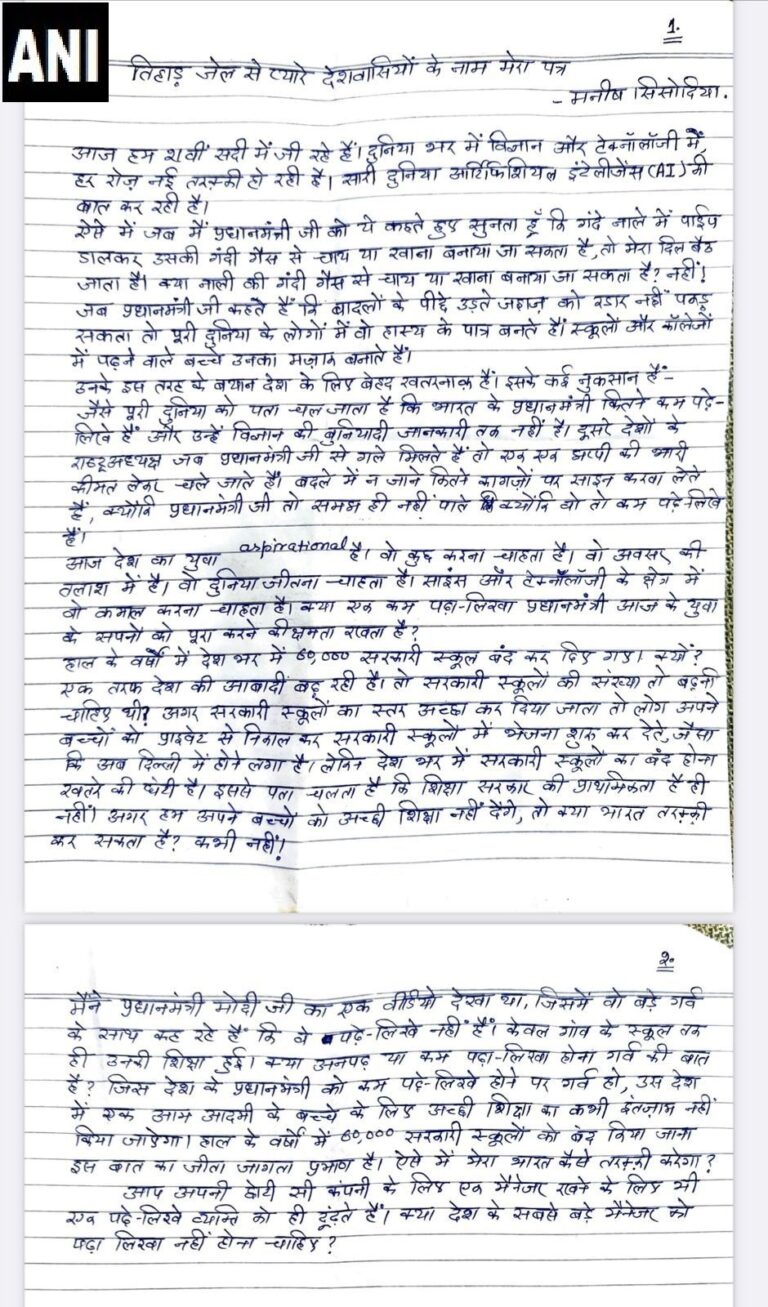 ANI
1.
तिहाड़ जेल से प्यारे देशवासियों के नाम मेरा पत्र
- मनीष सिसोदिया.
आज हम 21वीं सदी में जी रहे हैं। दुनिया भर में विज्ञान और टेक्नॉलॉजी में,
हर रोज़ नई तरक्की हो रही है। सारी दुनिया आर्टिफिशियल इंटेलीजेंस (AI) की
बात कर रही है।
ऐसे में जब मैं प्रधानमंत्री जी को ये कहते हुए सुनता हूँ कि गंदे नाले में पाईप
डालकर उसकी गंदी गैस से चाय या खाना बनाया जा सकता है, तो मेरा दिल बैठ
जाता है। क्या नाली की गंदी गैस से चाय या खाना बनाया जा सकता है? नहीं!
जब प्रधानमंत्री जी कहते हैं कि बादलों के पीछे उड़ते जहाज़ को रडार नहीं पकड़
सकता तो पूरी दुनिया के लोगों में वो हास्य के पात्र बनते हैं। स्कूलों और कॉलेजों
में पढ़ने वाले बच्चे उनका मज़ाक बनाते हैं।
उनके इस तरह के बयान देश के लिए बेहद खतरनाक हैं। इसके कई नुकसान हैं-
जैसे पूरी दुनिया को पता चल जाता है कि भारत के प्रधानमंत्री कितने कम पढ़े-
लिखे हैं और उन्हें विज्ञान की बुनियादी जानकारी तक नहीं है। दूसरे देशों के
राष्ट्रअध्यक्ष जब प्रधानमंत्री जी से गले मिलते हैं तो एक एक झप्पी की भारी
कीमत लेकर चले जाते हैं। बदले में न जाने कितने कागज़ों पर साइन करवा लेते
हैं, क्योंकि प्रधानमंत्री जी तो समझ ही नहीं पाते क्योंकि वो तो कम पढ़े-लिखे
हैं।
आज देश का युवा aspirational है। वो कुछ करना चाहता है। वो अवसर की
तलाश में है। वो दुनिया जीतना चाहता है। साइंस और टेक्नॉलॉजी के क्षेत्र में
वो कमाल करना चाहता है। क्या एक कम पढ़ा-लिखा प्रधानमंत्री आज के युवा
के सपनों को पूरा करने की क्षमता रखता है?
हाल के वर्षों में देश भर में 60,000 सरकारी स्कूल बंद कर दिए गए। क्यों?
एक तरफ देश की आबादी बढ़ रही है। तो सरकारी स्कूलों की संख्या तो बढ़नी
चाहिए थी? अगर सरकारी स्कूलों का स्तर अच्छा कर दिया जाता तो लोग अपने
बच्चों को प्राइवेट से निकाल कर सरकारी स्कूलों में भेजना शुरू कर देते, जैसा
कि अब दिल्ली में होने लगा है। लेकिन देश भर में सरकारी स्कूलों का बंद होना
खतरे की घंटी है। इससे पता चलता है कि शिक्षा सरकार की प्राथमिकता है ही
नहीं। अगर हम अपने बच्चों को अच्छी शिक्षा नहीं देंगे, तो क्या भारत तरक्की
कर सकता है? कभी नहीं!
2.
मैंने प्रधानमंत्री मोदी जी का एक वीडियो देखा था, जिसमें वो बड़े गर्व
के साथ कह रहे हैं कि वे पढ़े-लिखे नहीं हैं। केवल गांव के स्कूल तक
ही उनकी शिक्षा हुई। क्या अनपढ़ या कम पढ़ा-लिखा होना गर्व की बात
है? जिस देश के प्रधानमंत्री को कम पढ़े-लिखे होने पर गर्व हो, उस देश
में एक आम आदमी के बच्चे के लिए अच्छी शिक्षा का कभी इंतज़ाम नहीं
किया जाऐगा। हाल के वर्षों में 60,000 सरकारी स्कूलों को बंद किया जाना
इस बात का जीता जागता प्रमाण है। ऐसे में मेरा भारत कैसे तरक्की करेगा?
आप अपनी छोटी सी कंपनी के लिए एक मैनेजर रखने के लिए भी
एक पढ़े-लिखे व्यक्ति को ही ढूंढ़ते हैं। क्या देश के सबसे बड़े मैनेजर को
पढ़ा लिखा नहीं होना चाहिए?